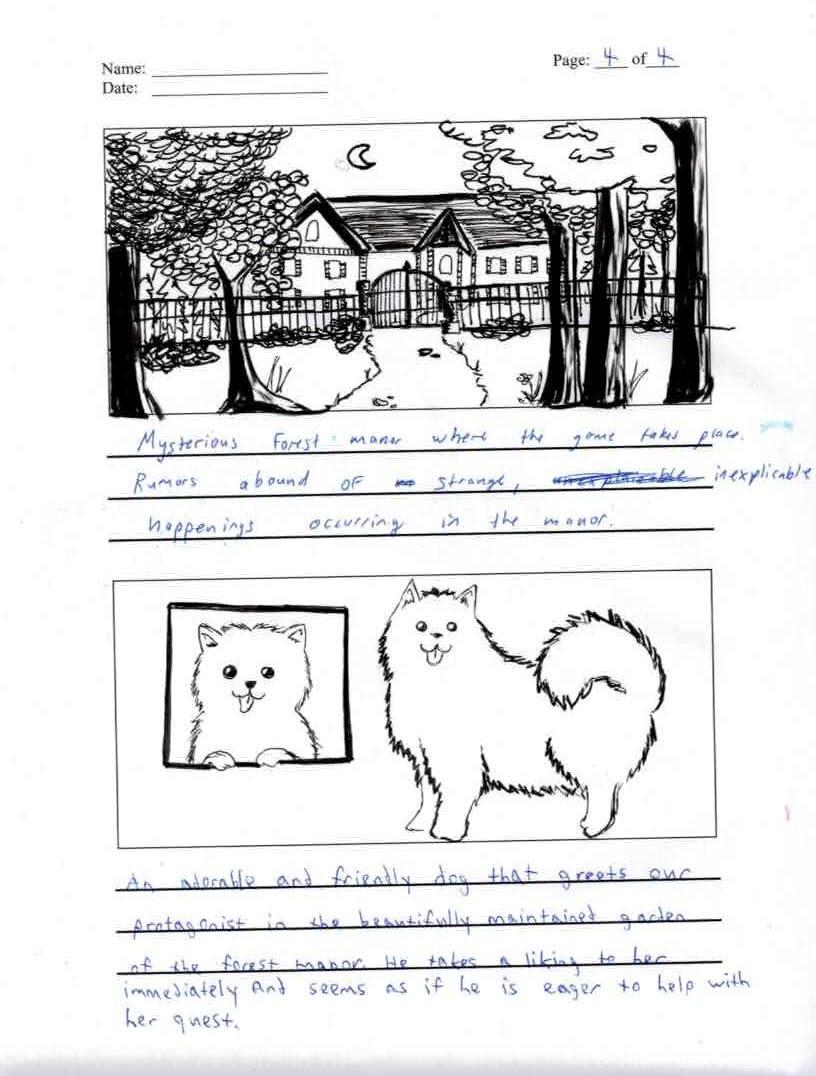 Name:
Page: 4 of 4
Date:
Mysterious Forest manor where the game takes place.
Rumors abound of strange, inexplicable
happenings occurring in the manor.
An adorable and friendly dog that greets our
protagonist in the beautifully maintained garden
of the forest manor. He takes a liking to her
immediately And seems as if he is eager to help with
her quest.